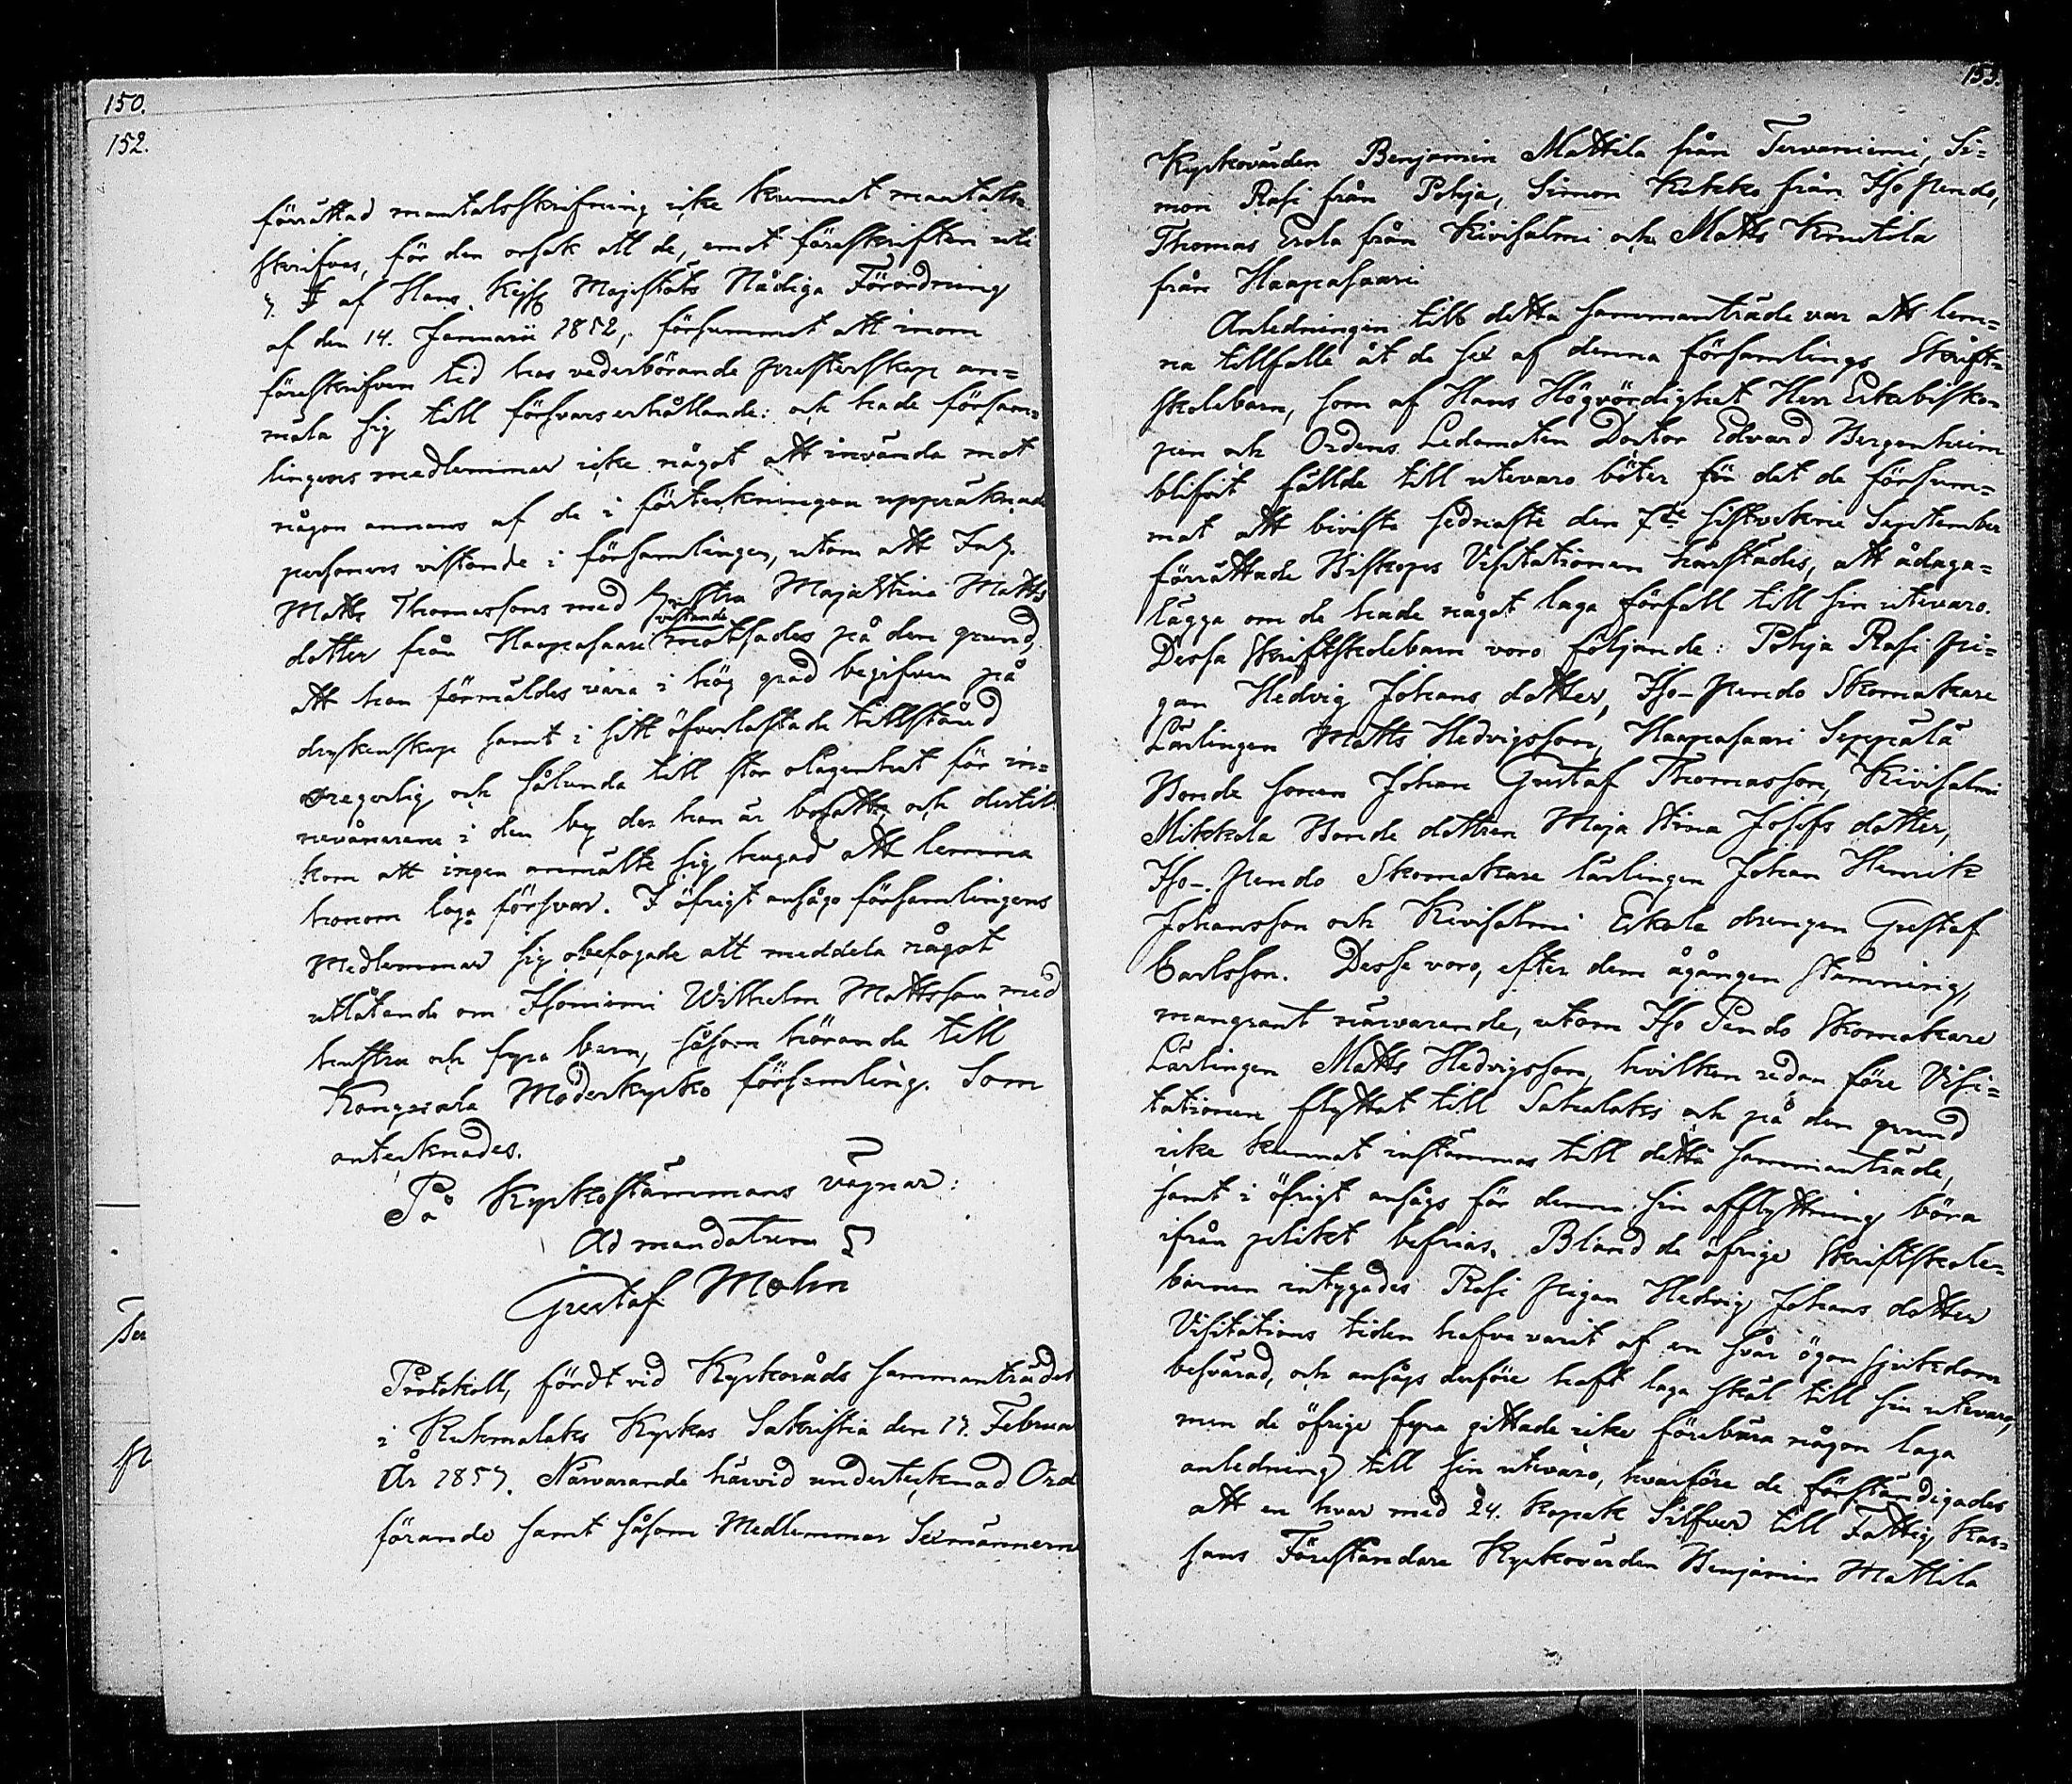 150.
152.
förrättad mantalsskrifning icke kunnat mantals-
skrifvas, för den orsak att de, emot föreskriften uti
7. § af Hans Kejs Majestäts Nådiga Förordning
af den 14. Januarii 1852, försummat att inom
föreskrifven tid hos vederbörande presterskap an-
mäla sig till försvars erhållande: och hade försam-
lingens medlemmar icke något att invända mot
någon annans af de i förteckningen uppräknade
personers vistande i församlingen, utom att Inh.
Matts Thomassons med hustru Maja Stina Matts
dotter från Haapasaari vistande motsades på den grund,
att han förmäldes vara i hög grad begifven på
dryckenskap samt i sitt öfverlastade tillstånd
oregerlig och sålunda till stor olägenhet för in-
nevånarene i den by der han är bosatt, och dertill
kom att ingen anmälte sig hugad att lemna
honom laga försvar. I öfrigt ansågo församlingens
Medlemmar sig obefogade att meddela något
utlåtande om Isoniemi Wilhelm Mattsson med
hustru och fyra barn, såsom hörande till
Kangasala Moderkyrko församling. Som
antecknades.
På Kyrkostämmans vägnar:
Ad mandatum
Gustaf Molin
Protokoll, fördt vid Kyrkoråds sammanträdet
i Kuhmalaks Kyrkas Sakristia den 17. Februa
År 1857. Närvarande härvid undertecknad Ord
förande samt såsom Medlemmar Sexmännerne
153.
Kyrkovärden Benjamin Mattila från Tervaniemi, Si-
mon Rasi från Pohja, Simon Kukko från Iso Pendo,
Thomas Erola från Kivisalmi och Matts Knutila
från Haapasaari
Anledningen till detta sammanträde var att lem-
na tillfälle åt de sex af denna församlings Skrift-
skolebarn, som af Hans Högvördighet Herr Erkebisko-
pen och Ordens Ledamoten Doctor Edvard Bergenheim
blifvit fällde till utevaro böter för det de försum-
mat att bivista sednaste den 7de sistvekne September
förrättade Biskops Visitationen härstädes, att ådaga-
lägga om de hade något laga förfall till sin utevaro.
Dessa Skriftskolebarn voro följande: Pohja Rasi pi-
gan Hedvig Johans dotter, Iso-Pendo Skomakare
Lärlingen Matts Hedvigsson, Haapasaari Seppälä
Bonde sonen Johan Gustaf Thomasson, Kivisalmi
Mikkola Bonde dottren Maja Stina Josefs dotter,
Iso-Pendo Skomakare lärlingen Johan Henrik
Johansson och Kivisalmi Eskola drengen Gustaf
Carlsson. Desse voro, efter dem ågången stämning,
mangrant närvarande, utom Iso Pendo Skomakare
Lärlingen Matts Hedvigsson, hvilken redan före Visi-
tationen flyttat till Sahalaks och på den grund
icke kunnat instämmas till detta sammanträde,
samt i öfrigt ansågs för denna sin afflyttning böra
ifrån plikt befrias. Bland de öfrige Skriftskole-
barnen intygades Rasi pigan Hedvig Johans dotter
Visitations tiden hafva varit af en svår ögon sjukdom
besvärad, och ansågs derföre haft laga skäl till sin utevaro,
men de öfrige fyra gittade icke förebära någon laga
anledning till sin utevaro, hvarföre de förständigades
att en hvar med 24. kopek Silfver till Fattig Kas-
sans Föreståndare Kyrkovärden Benjamin Mattila